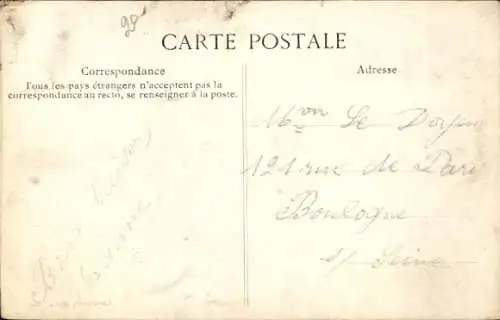 CARTE POSTALE
Correspondance
Tous les pays étrangers n'acceptent pas la
correspondance au recto, se renseigner à la poste.
Adresse
Mon Le Doyen
121 rue de Paris
Boulogne
s/ Seine